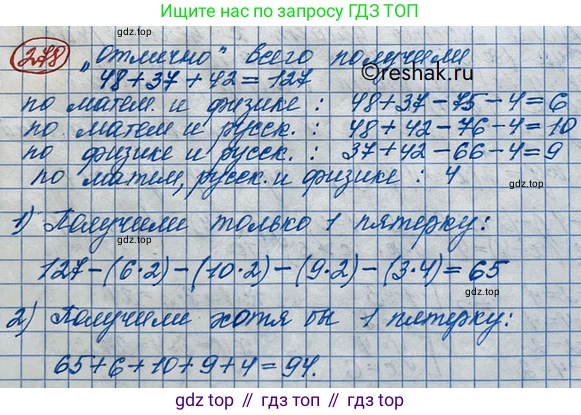 Ищите нас по запросу ГДЗ ТОП
278
"Отлично" всего получили
©reshak.ru
48+37+42=127
по матем. и физике : 48+37-75-4=6
по матем и русск. : 48+42-76-4=10
по физике и русск. : 37+42-66-4=9
по матем, русск. и физике : 4
1) Получили только 1 пятерку:
127-(6·2)-(10·2)-(9·2)-(3·4)=65
2) Получили хотя бы 1 пятерку:
65+6+10+9+4=94.
gdz.top // гдз топ // gdz.top